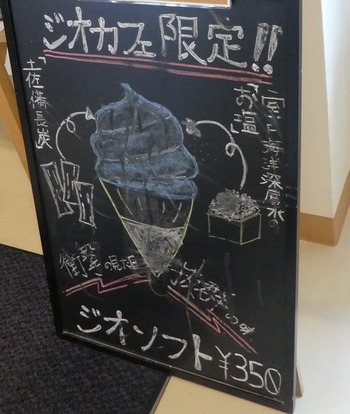 ジオカフェ限定!!
「土佐備長炭」
室戸海洋深層水の
「お塩」
の
ジオソフト ¥350